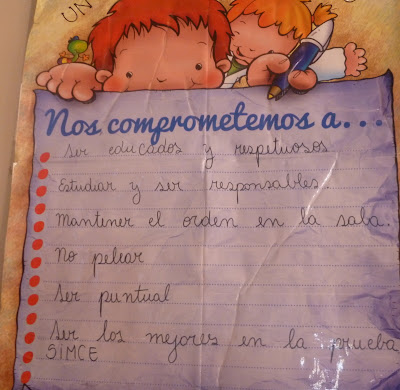 UN
Nos comprometemos a...
Ser educados y respetuosos
Estudiar y ser responsables.
Mantener el orden en la sala.
No pelear
Ser puntual
Ser los mejores en la prueba
SIMCE